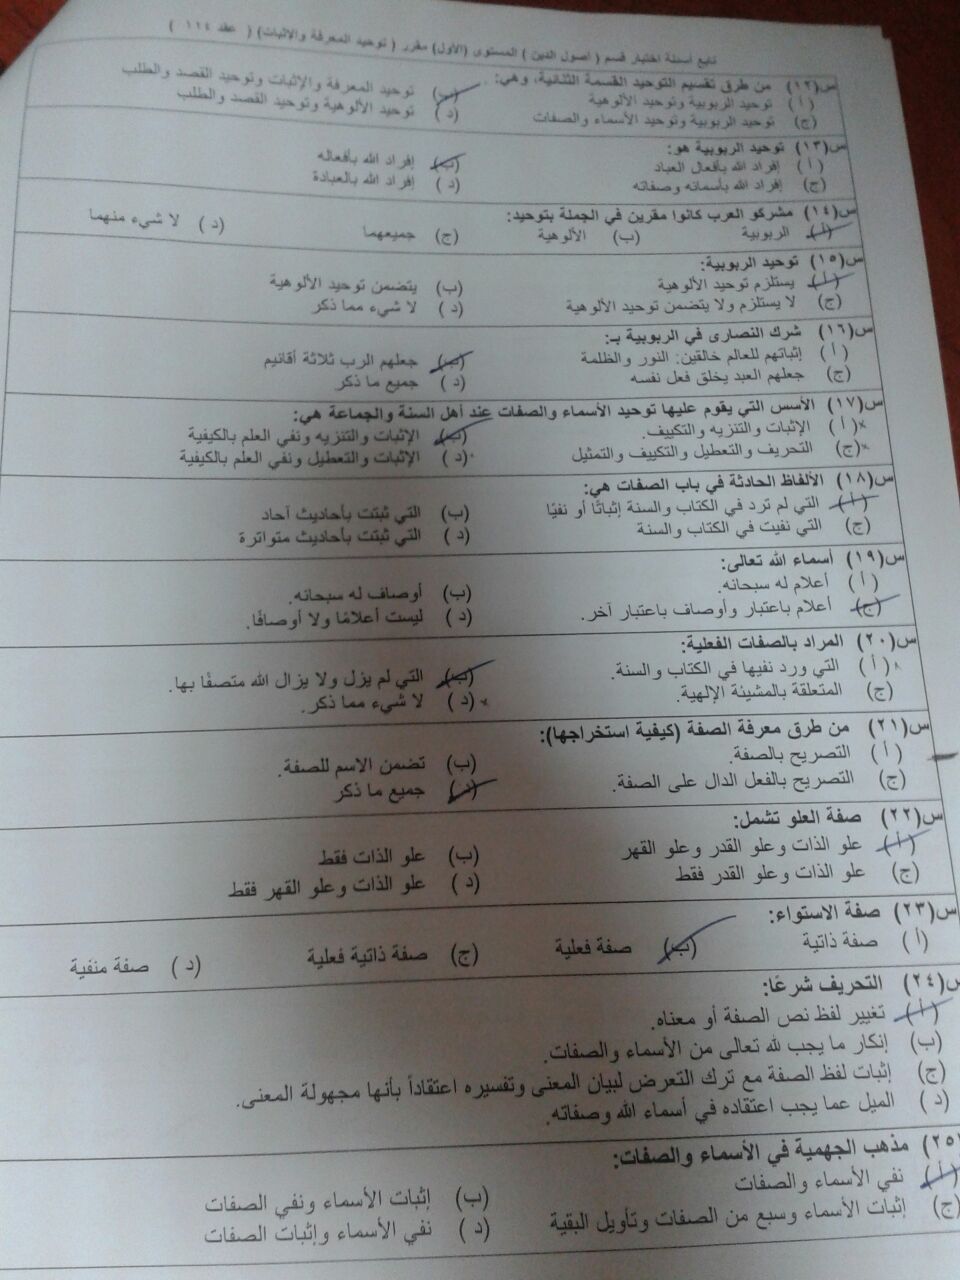 تابع أسئلة اختبار قسم ( أصول الدين ) المستوى (الأول) مقرر ( توحيد المعرفة والإثبات) ( عقد ١١٤ )
س(١٢) من طرق تقسيم التوحيد القسمة الثنائية، وهي:
(أ) توحيد الربوبية وتوحيد الألوهية (ب) توحيد المعرفة والإثبات وتوحيد القصد والطلب
(ج) توحيد الربوبية وتوحيد الأسماء والصفات (د) توحيد الألوهية وتوحيد القصد والطلب
س(١٣) توحيد الربوبية هو:
(أ) إفراد الله بأفعال العباد (ب) إفراد الله بأفعاله
(ج) إفراد الله بأسمائه وصفاته (د) إفراد الله بالعبادة
س(١٤) مشركو العرب كانوا مقرين في الجملة بتوحيد:
(أ) الربوبية (ب) الألوهية (ج) جميعهما (د) لا شيء منهما
س(١٥) توحيد الربوبية:
(أ) يستلزم توحيد الألوهية (ب) يتضمن توحيد الألوهية
(ج) لا يستلزم ولا يتضمن توحيد الألوهية (د) لا شيء مما ذكر
س(١٦) شرك النصارى في الربوبية بـ:
(أ) إثباتهم للعالم خالقين: النور والظلمة (ب) جعلهم الرب ثلاثة أقانيم
(ج) جعلهم العبد يخلق فعل نفسه (د) جميع ما ذكر
س(١٧) الأسس التي يقوم عليها توحيد الأسماء والصفات عند أهل السنة والجماعة هي:
(أ) الإثبات والتنزيه والتكييف. (ب) الإثبات والتنزيه ونفي العلم بالكيفية
(ج) التحريف والتعطيل والتكييف والتمثيل (د) الإثبات والتعطيل ونفي العلم بالكيفية
س(١٨) الألفاظ الحادثة في باب الصفات هي:
(أ) التي لم ترد في الكتاب والسنة إثباتًا أو نفيًا (ب) التي ثبتت بأحاديث آحاد
(ج) التي نفيت في الكتاب والسنة (د) التي ثبتت بأحاديث متواترة
س(١٩) أسماء الله تعالى:
(أ) أعلام له سبحانه. (ب) أوصاف له سبحانه.
(ج) أعلام باعتبار وأوصاف باعتبار آخر. (د) ليست أعلامًا ولا أوصافًا.
س(٢٠) المراد بالصفات الفعلية:
(أ) التي ورد نفيها في الكتاب والسنة. (ب) التي لم يزل ولا يزال الله متصفًا بها.
(ج) المتعلقة بالمشيئة الإلهية. (د) لا شيء مما ذكر.
س(٢١) من طرق معرفة الصفة (كيفية استخراجها):
(أ) التصريح بالصفة. (ب) تضمن الاسم للصفة.
(ج) التصريح بالفعل الدال على الصفة. (د) جميع ما ذكر
س(٢٢) صفة العلو تشمل:
(أ) علو الذات وعلو القدر وعلو القهر (ب) علو الذات فقط
(ج) علو الذات وعلو القدر فقط (د) علو الذات وعلو القهر فقط
س(٢٣) صفة الاستواء:
(أ) صفة ذاتية (ب) صفة فعلية (ج) صفة ذاتية فعلية (د) صفة منفية
س(٢٤) التحريف شرعًا:
(أ) تغيير لفظ نص الصفة أو معناه.
(ب) إنكار ما يجب لله تعالى من الأسماء والصفات.
(ج) إثبات لفظ الصفة مع ترك التعرض لبيان المعنى وتفسيره اعتقاداً بأنها مجهولة المعنى.
(د) الميل عما يجب اعتقاده في أسماء الله وصفاته.
(٢٥) مذهب الجهمية في الأسماء والصفات:
(أ) نفي الأسماء والصفات (ب) إثبات الأسماء ونفي الصفات
(ج) إثبات الأسماء وسبع من الصفات وتأويل البقية (د) نفي الأسماء وإثبات الصفات